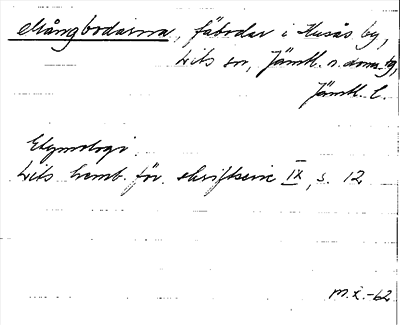 Mångbodarna, fäbodar i Husås by,
Lits sn, Jämtl. n. doms.tg,
Jämtl. l.
Etymologi:
Lits hemb. för. skriftserie IX, s. 12
m.x.-62